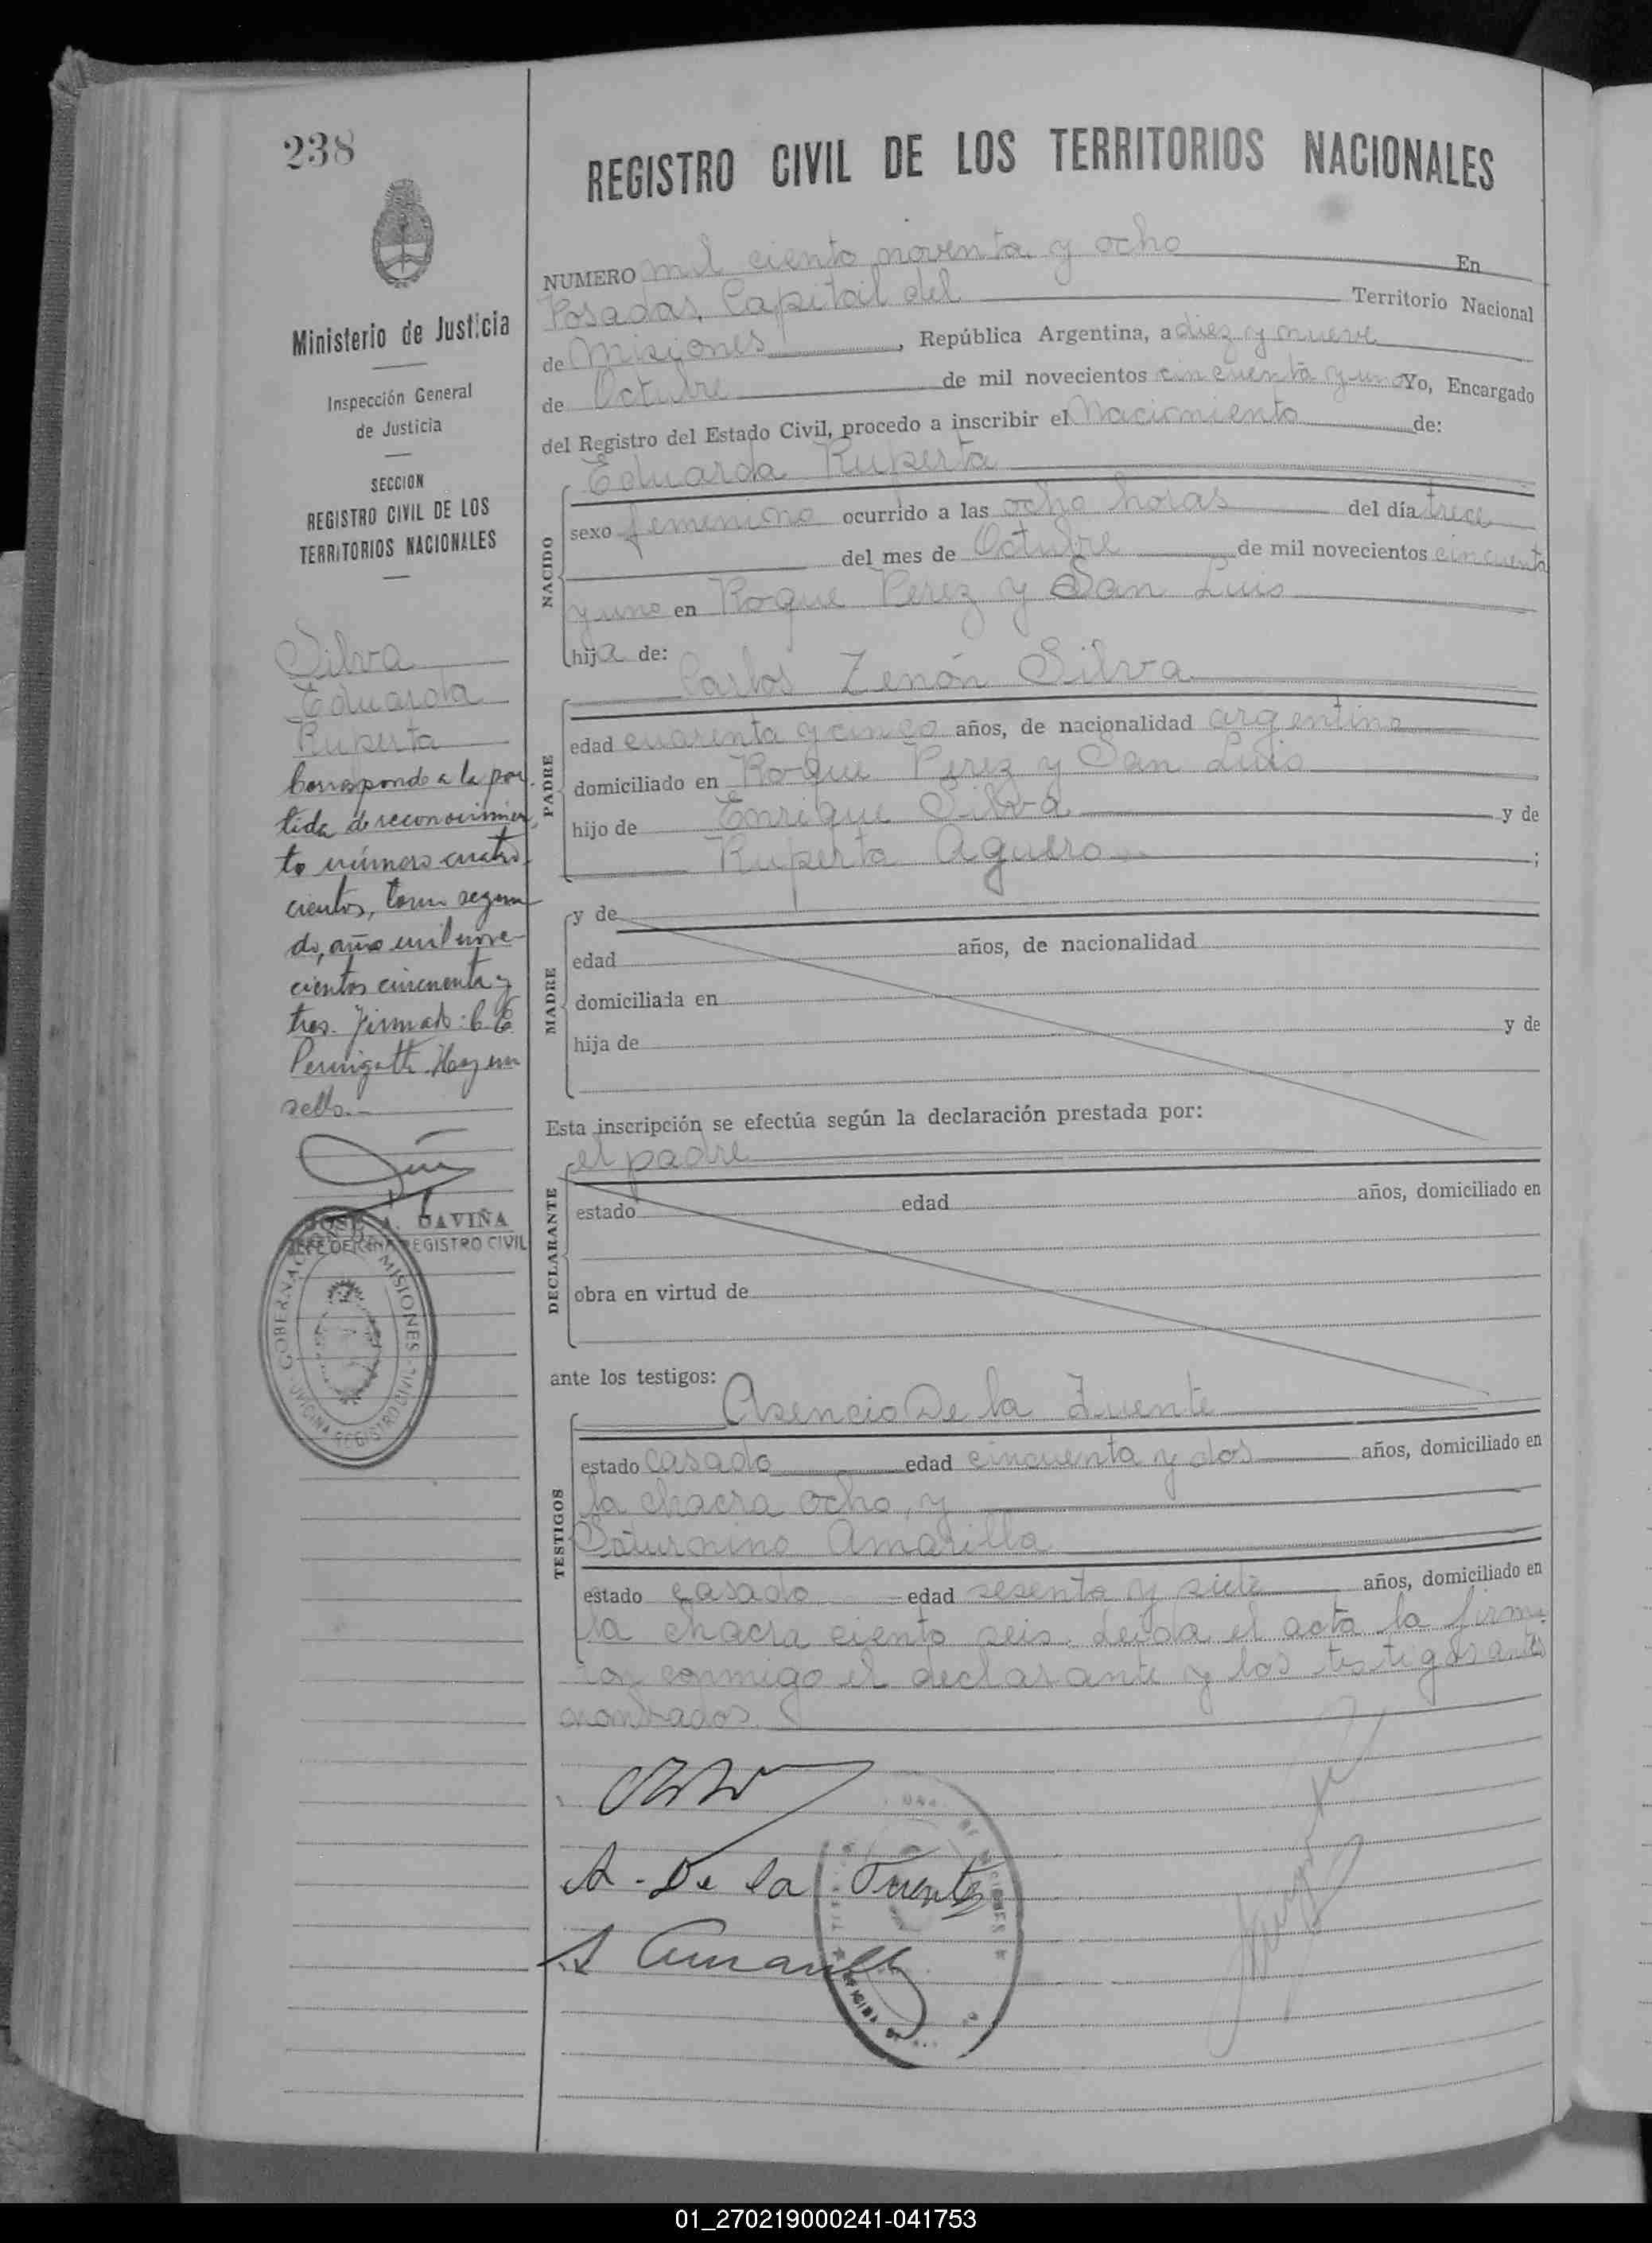 238
Ministerio de Justicia
Inspección General
de Justicia
SECCION
REGISTRO CIVIL DE LOS
TERRITORIOS NACIONALES
Silva
Eduarda
Ruperta
Corresponde a la par-
tida de reconocimien-
to número cuatro-
cientos, tomo segun-
do, año mil nove-
cientos cincuenta y
tres. Firmado: C. E.
Hay un
sello.-
JOSE A. GAVIÑA
JEFE OFICINA REGISTRO CIVIL
GOBERNACION DE MISIONES - OFICINA REGISTRO CIVIL
REGISTRO CIVIL DE LOS TERRITORIOS NACIONALES
NUMERO mil ciento noventa y ocho En
Posadas, Capital del Territorio Nacional
de Misiones, República Argentina, a diez y nueve
de Octubre de mil novecientos cincuenta y uno Yo, Encargado
del Registro del Estado Civil, procedo a inscribir el Nacimiento de:
NACIDO
Eduarda Ruperta
sexo femenino ocurrido a las ocho horas del día trece
del mes de Octubre de mil novecientos cincuenta
y uno en Roque Perez y San Luis
hija de:
PADRE
Carlos Zenón Silva
edad cuarenta y cinco años, de nacionalidad argentino
domiciliado en Roque Perez y San Luis
hijo de Enrique Silva y de
Ruperta Aguero ;
MADRE
y de
edad años, de nacionalidad
domiciliada en
hija de y de
Esta inscripción se efectúa según la declaración prestada por:
DECLARANTE
el padre
estado edad años, domiciliado en
obra en virtud de
ante los testigos:
TESTIGOS
Asencio De la Fuente
estado casado edad cincuenta y dos años, domiciliado en
la chacra ocho, y
Saturnino Amarilla
estado casado edad sesenta y siete años, domiciliado en
la chacra ciento seis. Leida el acta la firma-
ron conmigo el declarante y los testigos antes
nombrados.
A. De la Fuente
S Amarilla
01_270219000241-041753